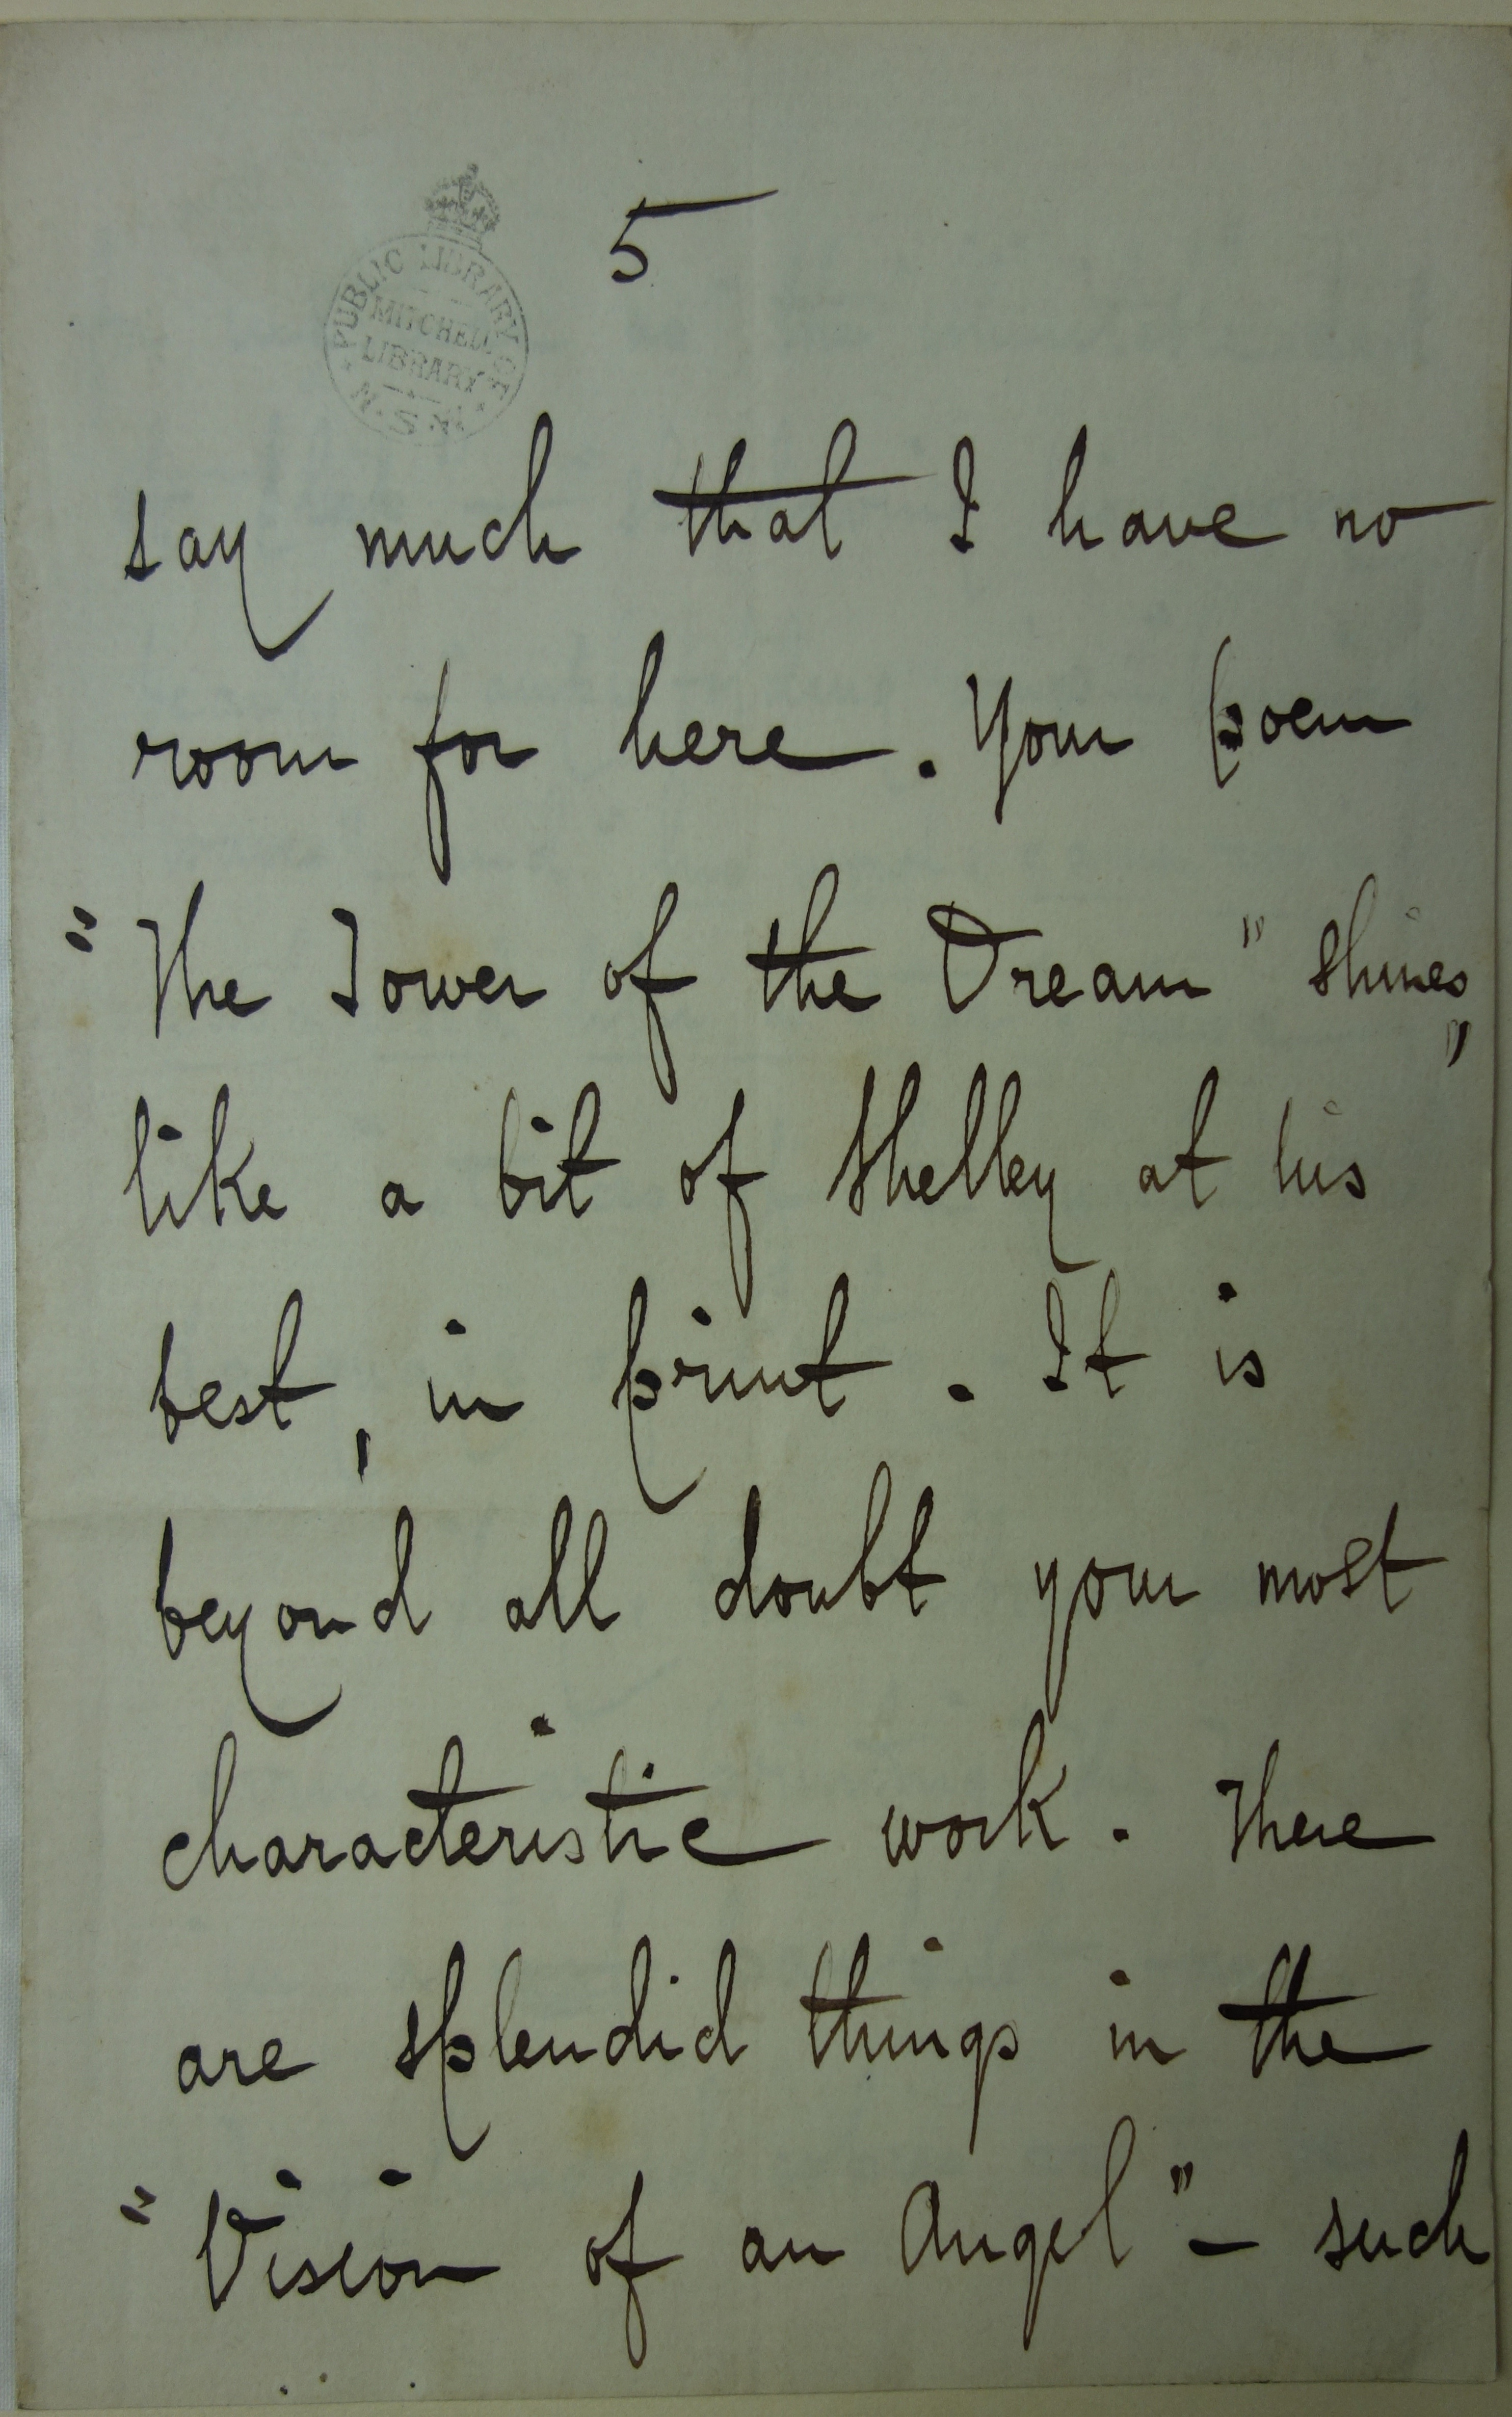 5
PUBLIC LIBRARY OF
MITCHELL
LIBRARY
N.S.W.
say much that I have no
room for here. Your poem
"The Tower of the Dream" shines"
like a bit of Shelley at his
best, in print. It is
beyond all doubt your most
characteristic work. There
are splendid things in the
"Vision of an Angel" - such